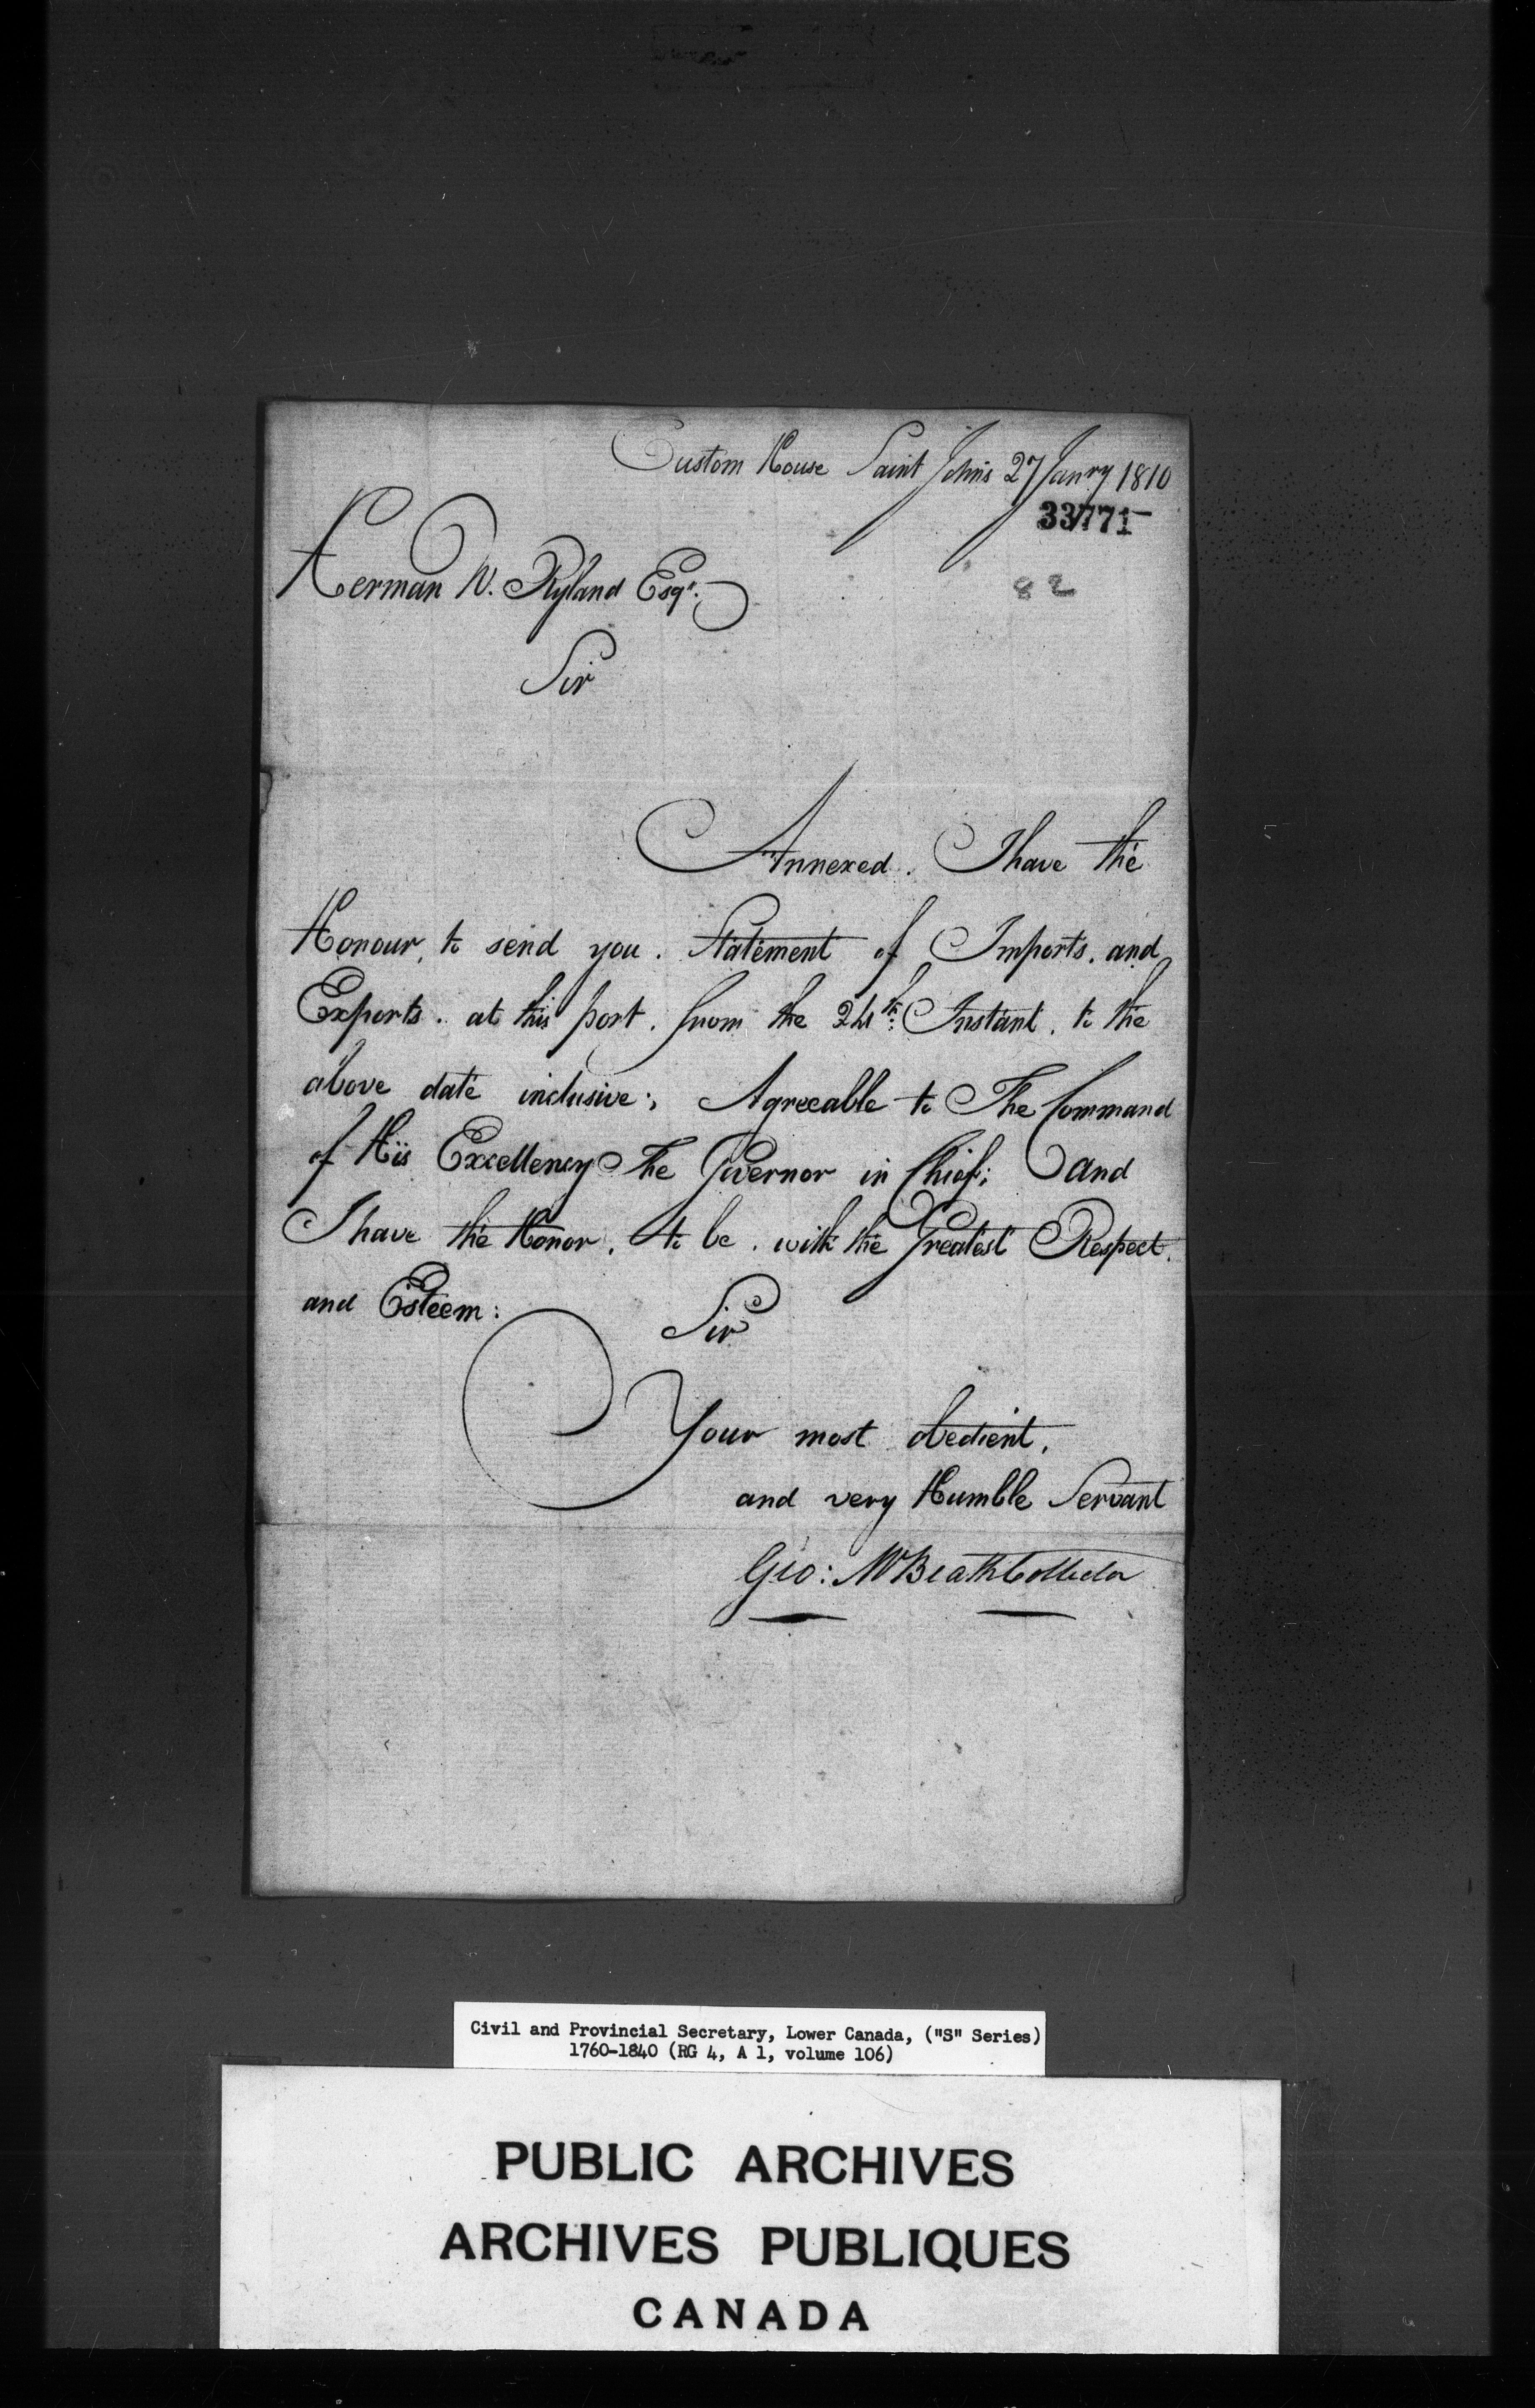 Custom House Saint John's 27 Janry 1810
33771
82
Herman W. Ryland Esqr.
Sir
Annexed. I have the
Honour, to send you. Statement of Imports. and
Exports. at this port. from the 24th: Instant. to the
above date inclusive;, Agreeable to The Command
of His Excellency The Governor in Chief; and
I have the Honor. to be. with the Greatest Respect.
and Esteem:
Sir
Your most obedient.
and very Humble Servant
Geo: McBeath Collector
Civil and Provincial Secretary, Lower Canada, ("S" Series)
1760-1840 (RG 4, A 1, volume 106)
PUBLIC ARCHIVES
ARCHIVES PUBLIQUES
CANADA